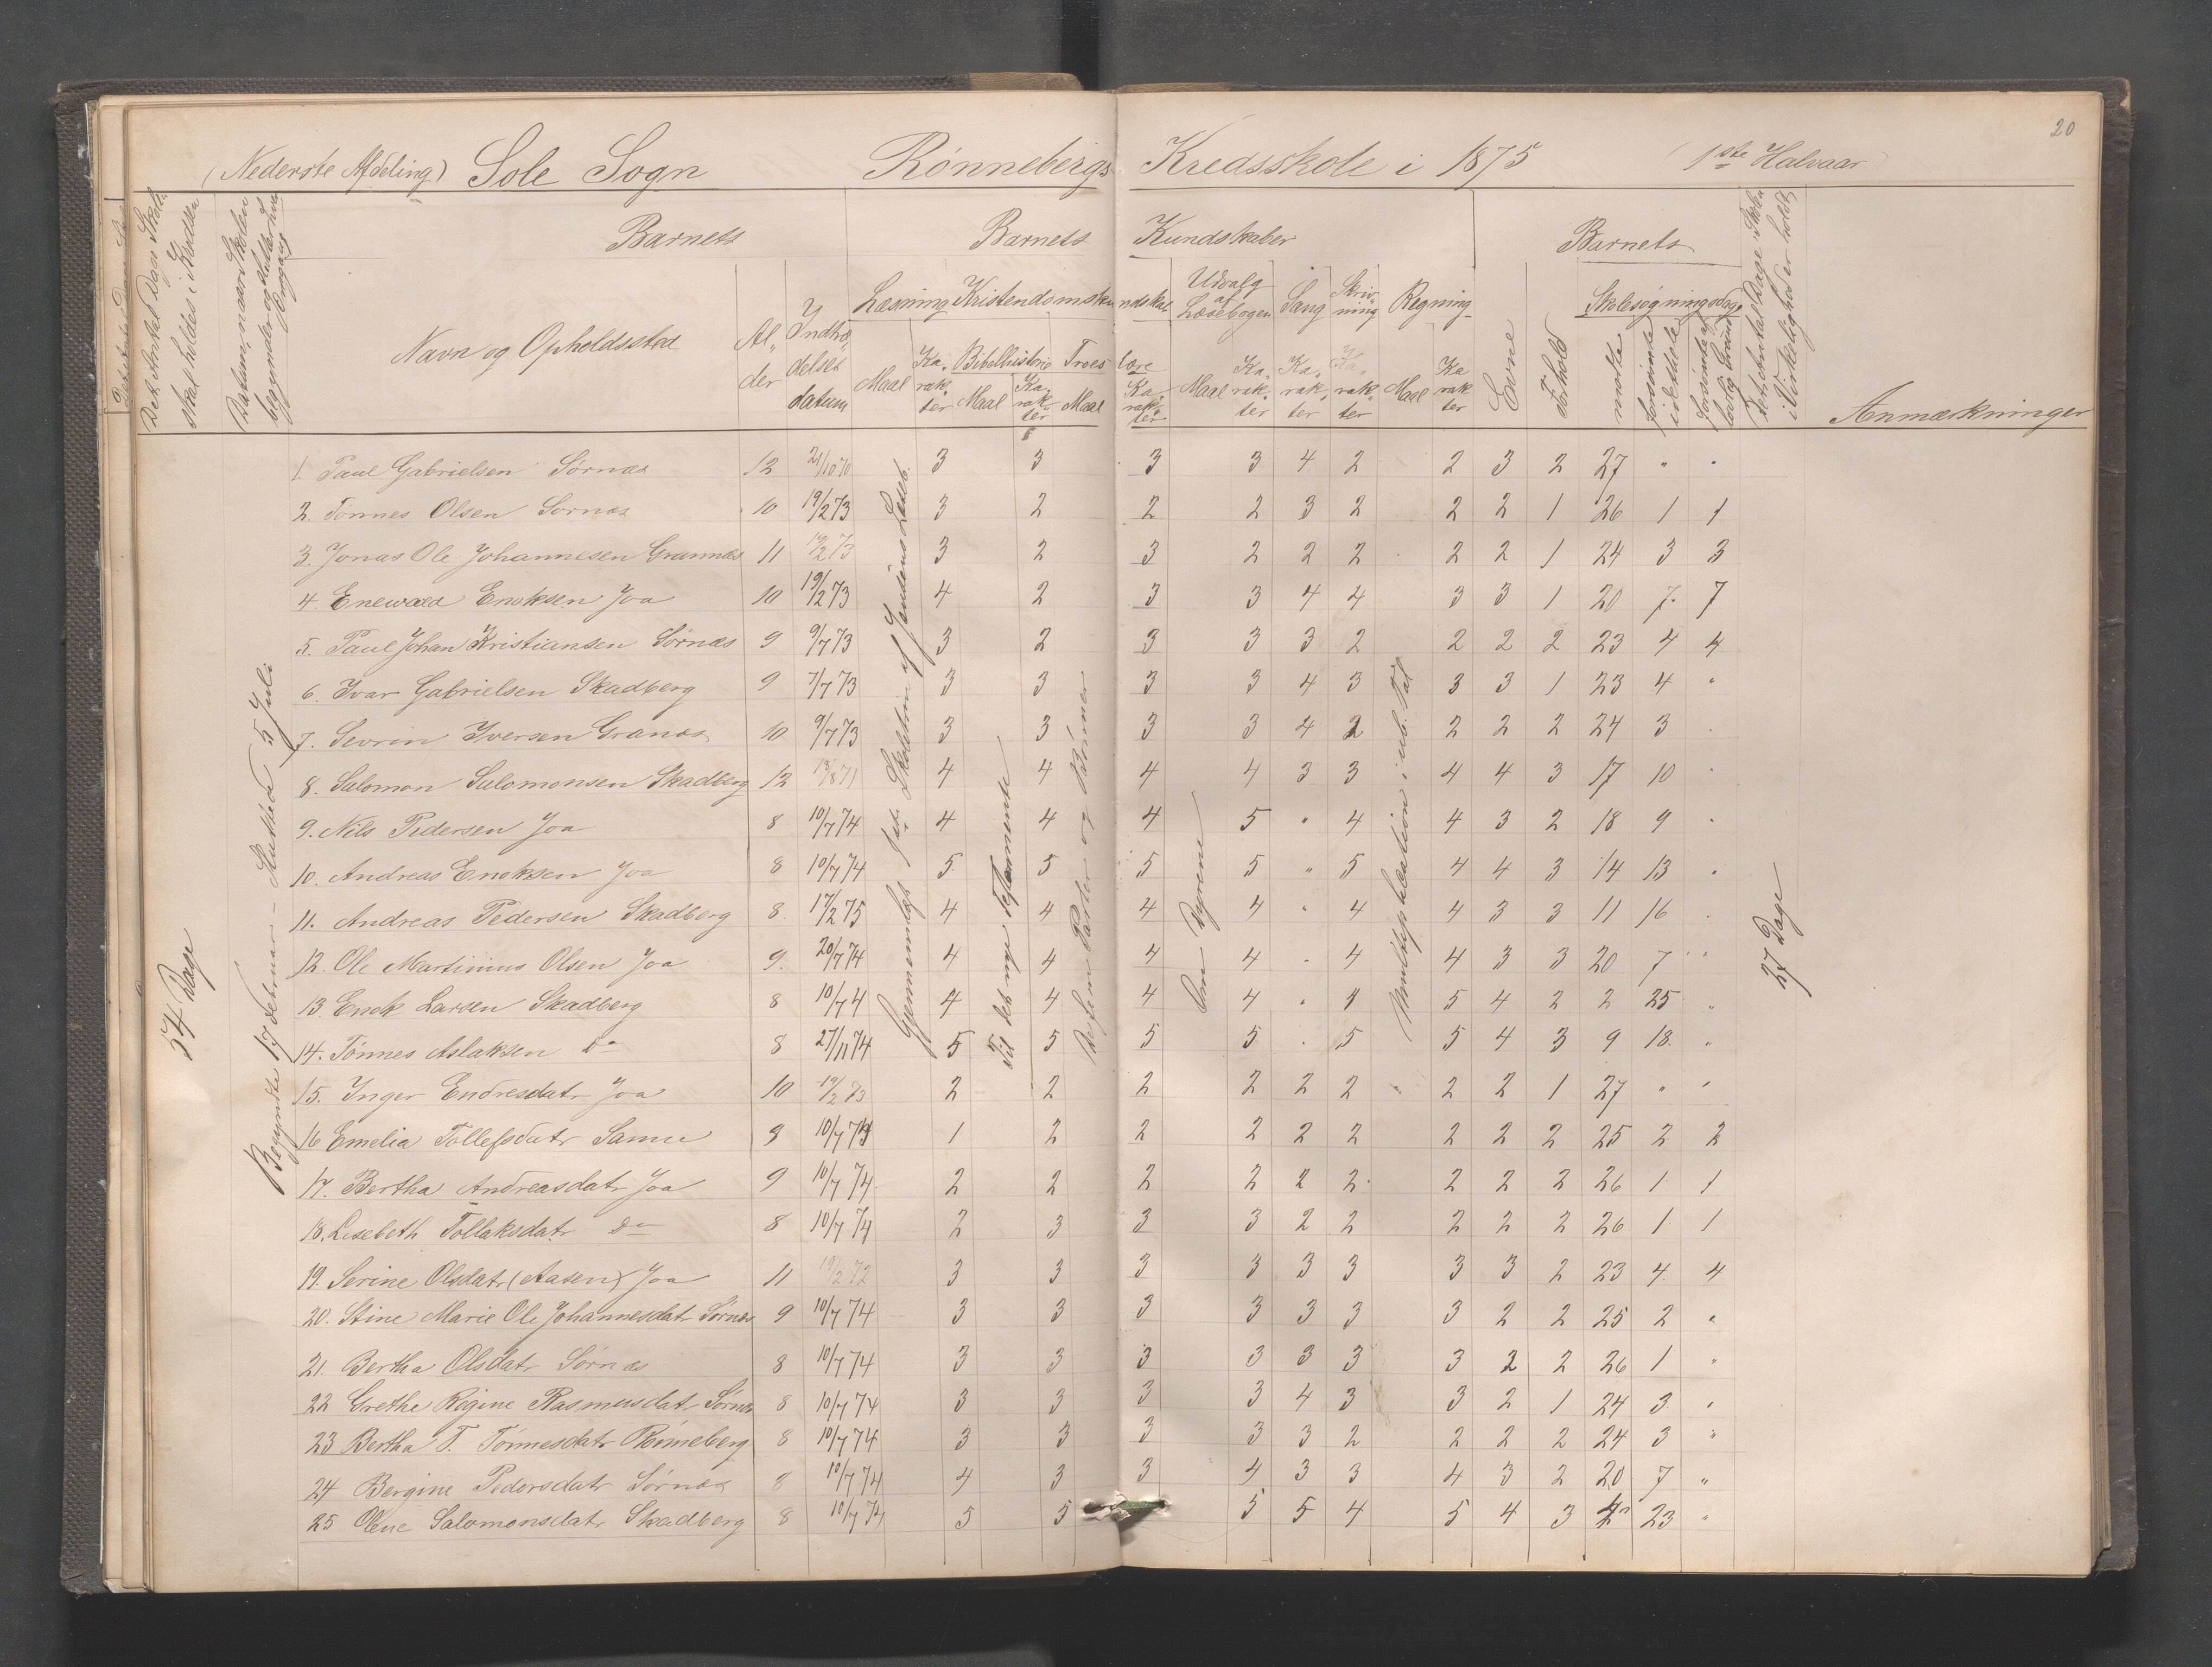 20
(Nederste Afdeling) Sole Sogn Rønnebergs Kredsskole i 1875 (1ste Halvaar)
Det Antal Dage Skole skal holdes i Kredsen
Datum, naar Skolen begynder og slutter hver Omgang
Barnets
Barnets Kundskaber
Barnets
Det Antal Dage Skolen i Virkelighed er holdt
Navn og Opholdssted
Alder
Indtrædelses datum
Læsning
Kristendomskundskab
Udvalg af Læsebogen
Sang
Skrivning
Regning
Evne
Forhold
Skolesøgningsdage
Maal
Karakter
Bibelhistorie
Maal
Karakter
Troeslære
Maal
Karakter
Maal
Karakter
Karakter
Karakter
Maal
Karakter
mødte
forsømte i det Hele
forsømte af lovlig Grund
Anmærkninger
54 Dage
Begyndte 17 Februar - Slutted 5 Juli
Gjennemgaaet Jensens Læseb.
Til det nye Testamente
De fem Parter og Bønner
Om Dyrene
Multiplication i ub. Tal
27 Dage
1. Paul Gabrielsen Sørnæs 12 21/10 70 3 3 3 3 4 2 2 3 2 27 " "
2. Tønnes Olsen Sørnæs 10 19/2 73 3 2 2 2 3 2 2 2 1 26 1 1
3. Jonas Ole Johannesen Grannæs 11 19/2 73 3 2 3 2 2 2 2 2 1 24 3 3
4. Enewald Enoksen Joa 10 19/2 73 4 2 3 3 4 4 3 3 1 20 7 7
5. Paul Johan Kristiansen Sørnæs 9 9/7 73 3 2 3 3 3 2 2 2 2 23 4 4
6. Ivar Gabrielsen Skadberg 9 7/7 73 3 3 3 3 4 3 3 3 1 23 4 "
7. Sevrin Iversen Granæs 10 9/7 73 3 3 3 3 4 2 2 2 2 24 3 "
8. Salomon Salomonsen Skadberg 12 18/8 71 4 4 4 4 3 3 4 4 3 17 10 "
9. Nils Pedersen Joa 8 10/7 74 4 4 4 5 " 4 4 3 2 18 9 "
10. Andreas Enoksen Joa 8 10/7 74 5 5 5 5 " 5 4 4 3 14 13 "
11. Andreas Pedersen Skadberg 8 17/2 75 4 4 4 4 " 4 4 3 3 11 16 "
12. Ole Martinius Olsen Joa 9 20/7 74 4 4 4 4 " 4 4 3 3 20 7 "
13. Enok Larsen Skadberg 8 10/7 4 4 4 4 4 " 4 5 4 2 2 25 "
14. Tønnes Aslaksen Do 8 27/11 74 5 5 5 5 " 5 5 4 3 9 18 "
15. Inger Endresdatr Joa 10 19/2 73 2 2 2 2 2 2 2 2 1 27 " "
16 Emelia Tollefsdatr Sømme 9 10/7 74 1 2 2 2 2 2 2 2 2 25 2 2
17. Bertha Andreasdatr Joa 9 10/7 74 2 2 2 2 2 2 2 2 2 26 1 1
18. Lisebeth Tollaksdatr Do 8 10/7 74 2 3 3 3 2 2 2 2 2 26 1 1
19. Serine Olsdatr (Aasen) Joa 11 19/2 72 3 3 3 3 3 3 3 3 2 23 4 4
20. Stine Marie Ole Johannesdatr Sørnæs 9 10/7 74 3 3 3 3 3 3 3 2 2 25 2 "
21. Bertha Olsdatr Sørnæs 8 10/7 74 3 3 3 3 3 3 3 2 2 26 1 "
22 Grethe Regine Rasmusdatr Sørnæs 8 10/7 74 3 3 3 3 4 3 3 2 1 24 3 "
23 Bertha T. Tønnesdatr Rønneberg 8 10/7 74 3 3 3 3 3 2 2 2 2 24 3 "
24 Bergine Pedersdatr Sørnæs 8 10/7 74 4 3 3 4 3 3 4 3 2 20 7 "
25 Olene Salomonsdatr Skadberg 8 10/7 74 5 5 5 5 4 5 4 3 4 23 "